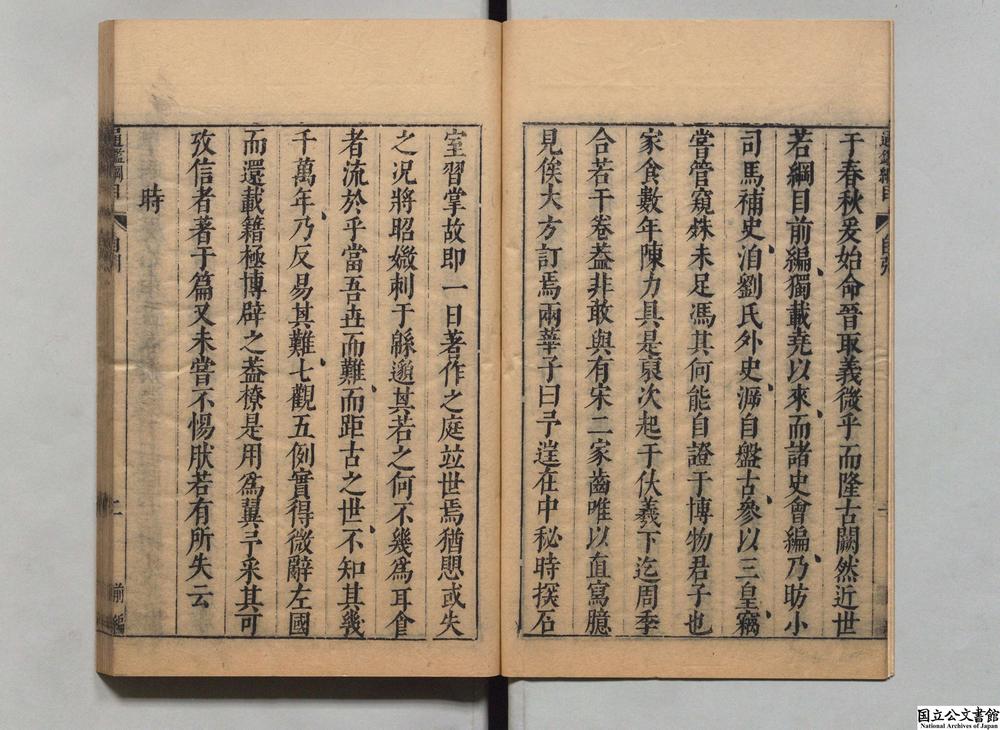 于春秋爰始命晉取義微乎而隆古闕然近世
若綱目前編獨載堯以來而諸史會編乃昉小
司馬補史洎劉氏外史溽自盤古參以三皇竊
嘗管窺姝未足馮其何能自證于博物君子也
家食數年陳力具是㐮次起于伏羲下迄周季
合若干卷蓋非敢與有宋二家齒唯以直寫臆
見俟大方訂焉兩華子曰予逞在中秘時揆石
室習掌故即一日著作之庭竝世焉猶思或失
之况將昭媺刺于緜邈其若之何不幾爲耳食
者流於乎當吾世而難而距古之世不知其幾
千萬年乃反易其難七觀五例實得微辭左國
而還載籍極博辟之蓋橑是用爲翼予采其可
攷信者著于篇又未嘗不惕肰若有所失云
時
通鑑綱目
二
前編
国立公文書館
National Archives of Japan